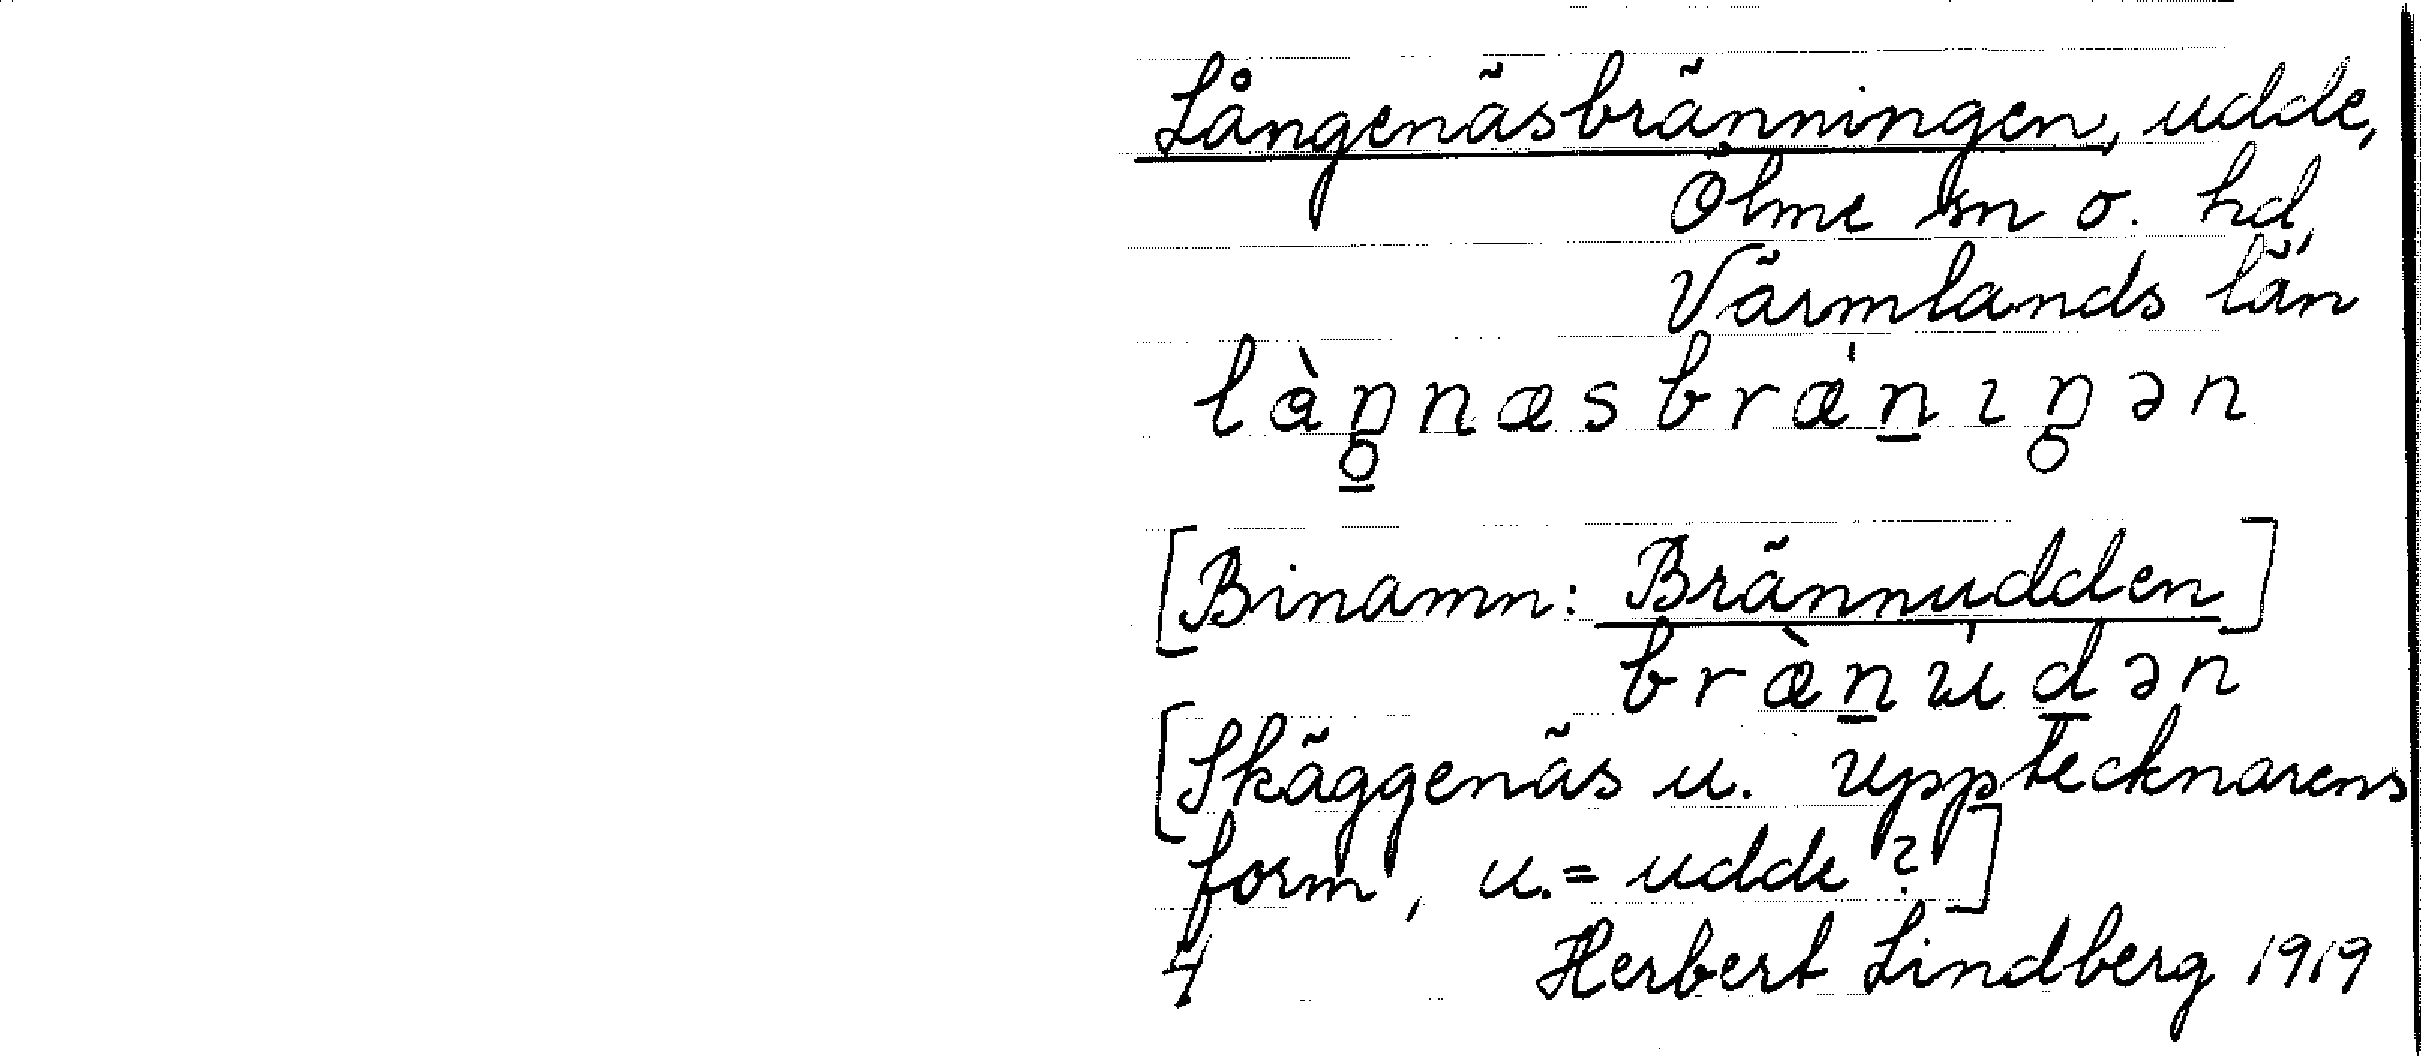 Långenäsbränningen, udde,
Ölme sn o. hd,
Värmlands län
làŋnæsbrǽnıŋən
[Binamn: Brännudden]
brænudən
[Skäggenäs u. upptecknarens
form, u. = udde?]
4 Herbert Lindberg 1919